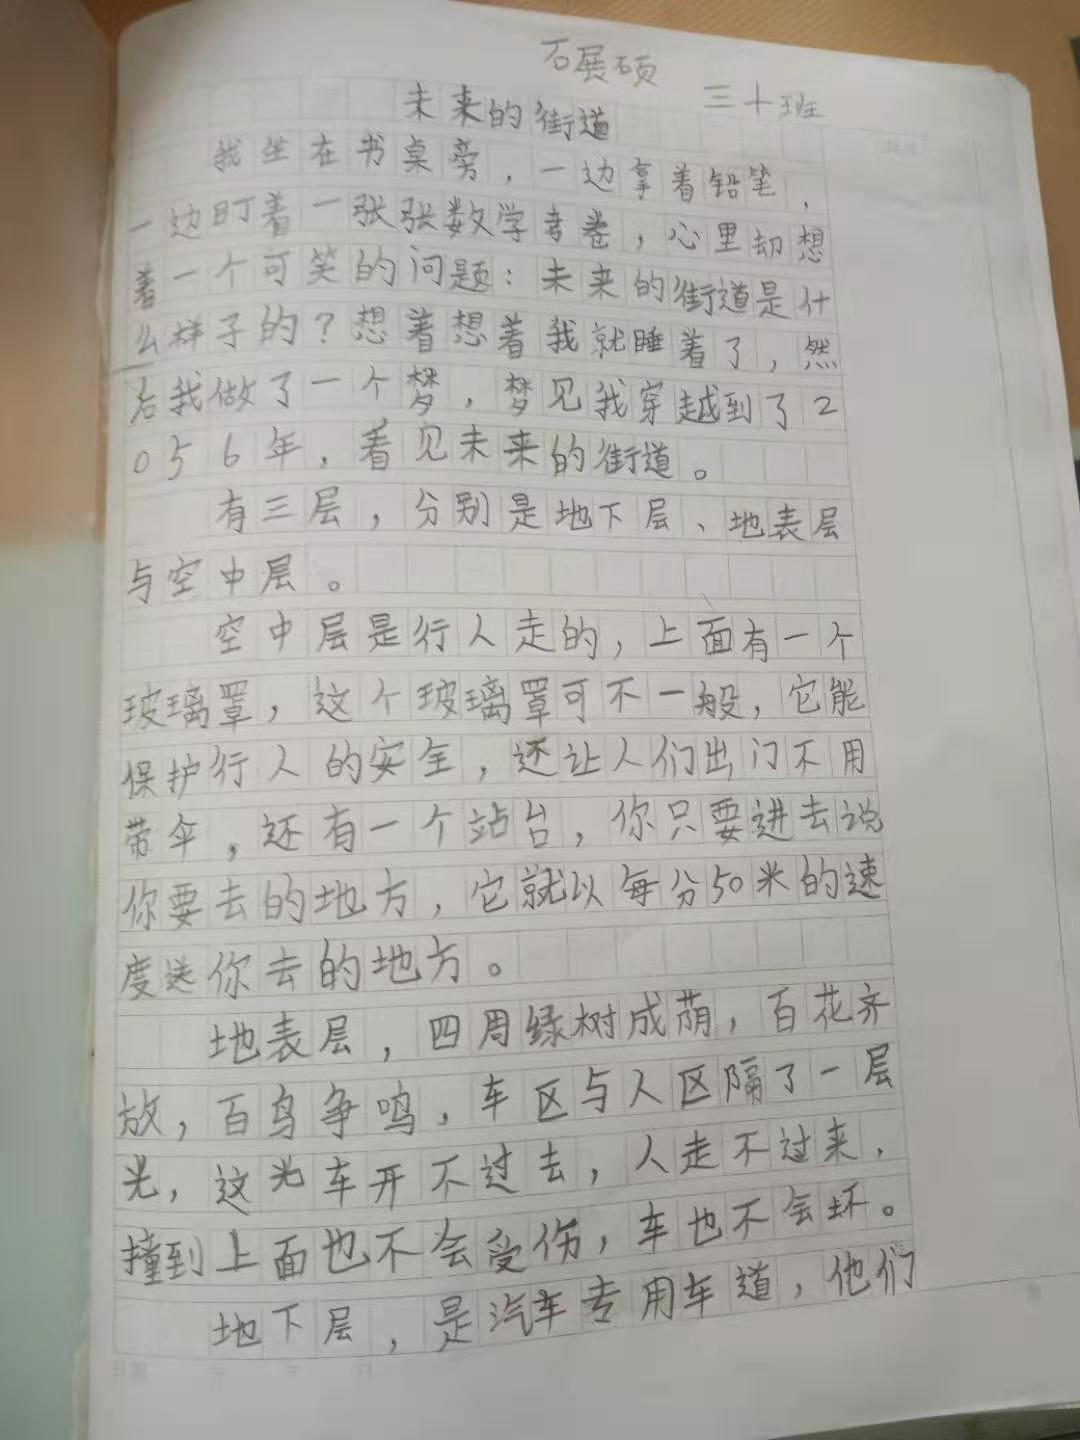 石展硕
三十班
未来的街道
我坐在书桌旁，一边拿着铅笔，
一边盯着一张张数学考卷，心里却想
着一个可笑的问题：未来的街道是什
么样子的？想着想着我就睡着了，然
后我做了一个梦，梦见我穿越到了2
056年，看见未来的街道。
有三层，分别是地下层、地表层
与空中层。
空中层是行人走的，上面有一个
玻璃罩，这个玻璃罩可不一般，它能
保护行人的安全，还让人们出门不用
带伞，还有一个站台，你只要进去说
你要去的地方，它就以每分50米的速
度送你去的地方。
地表层，四周绿树成荫，百花齐
放，百鸟争鸣，车区与人区隔了一层
光，这光车开不过去，人走不过来，
撞到上面也不会受伤，车也不会坏。
地下层，是汽车专用车道，他们